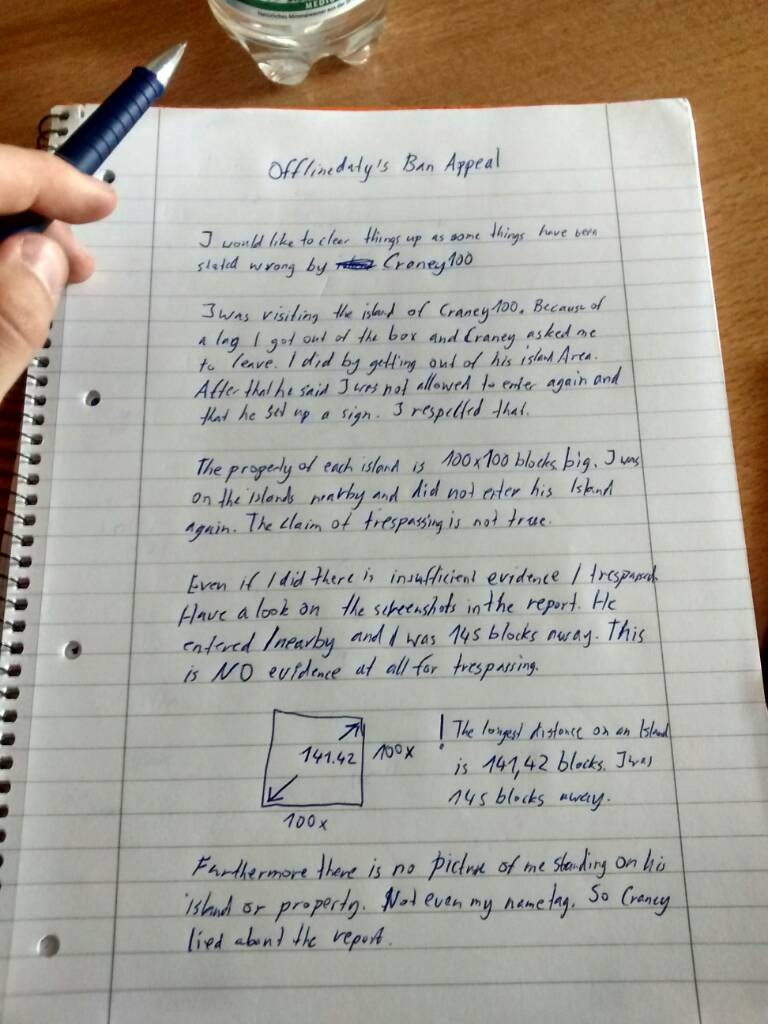 MEDIC
Natürliches Mineralwasser aus der
Offlinedaty's Ban Appeal
I would like to clear things up as some things have been
stated wrong by Craney100
I was visiting the island of Craney100. Because of
a lag I got out of the box and Craney asked me
to leave. I did by getting out of his island Area.
After that he said I was not allowed to enter again and
that he set up a sign. I respelled that.
The property of each island is 100x100 blocks big. I was
on the islands nearby and did not enter his Island
again. The claim of trespassing is not true.
Even if I did there is insufficient evidence I trespassed.
Have a look on the screenshots in the report. He
entered /nearby and I was 145 blocks away. This
is NO evidence at all for trespassing.
141.42 100x
100x
! The longest distance on an Island
is 141,42 blocks. I was
145 blocks away.
Furthermore there is no picture of me standing on his
island or property. Not even my nametag. So Craney
lied about the report.